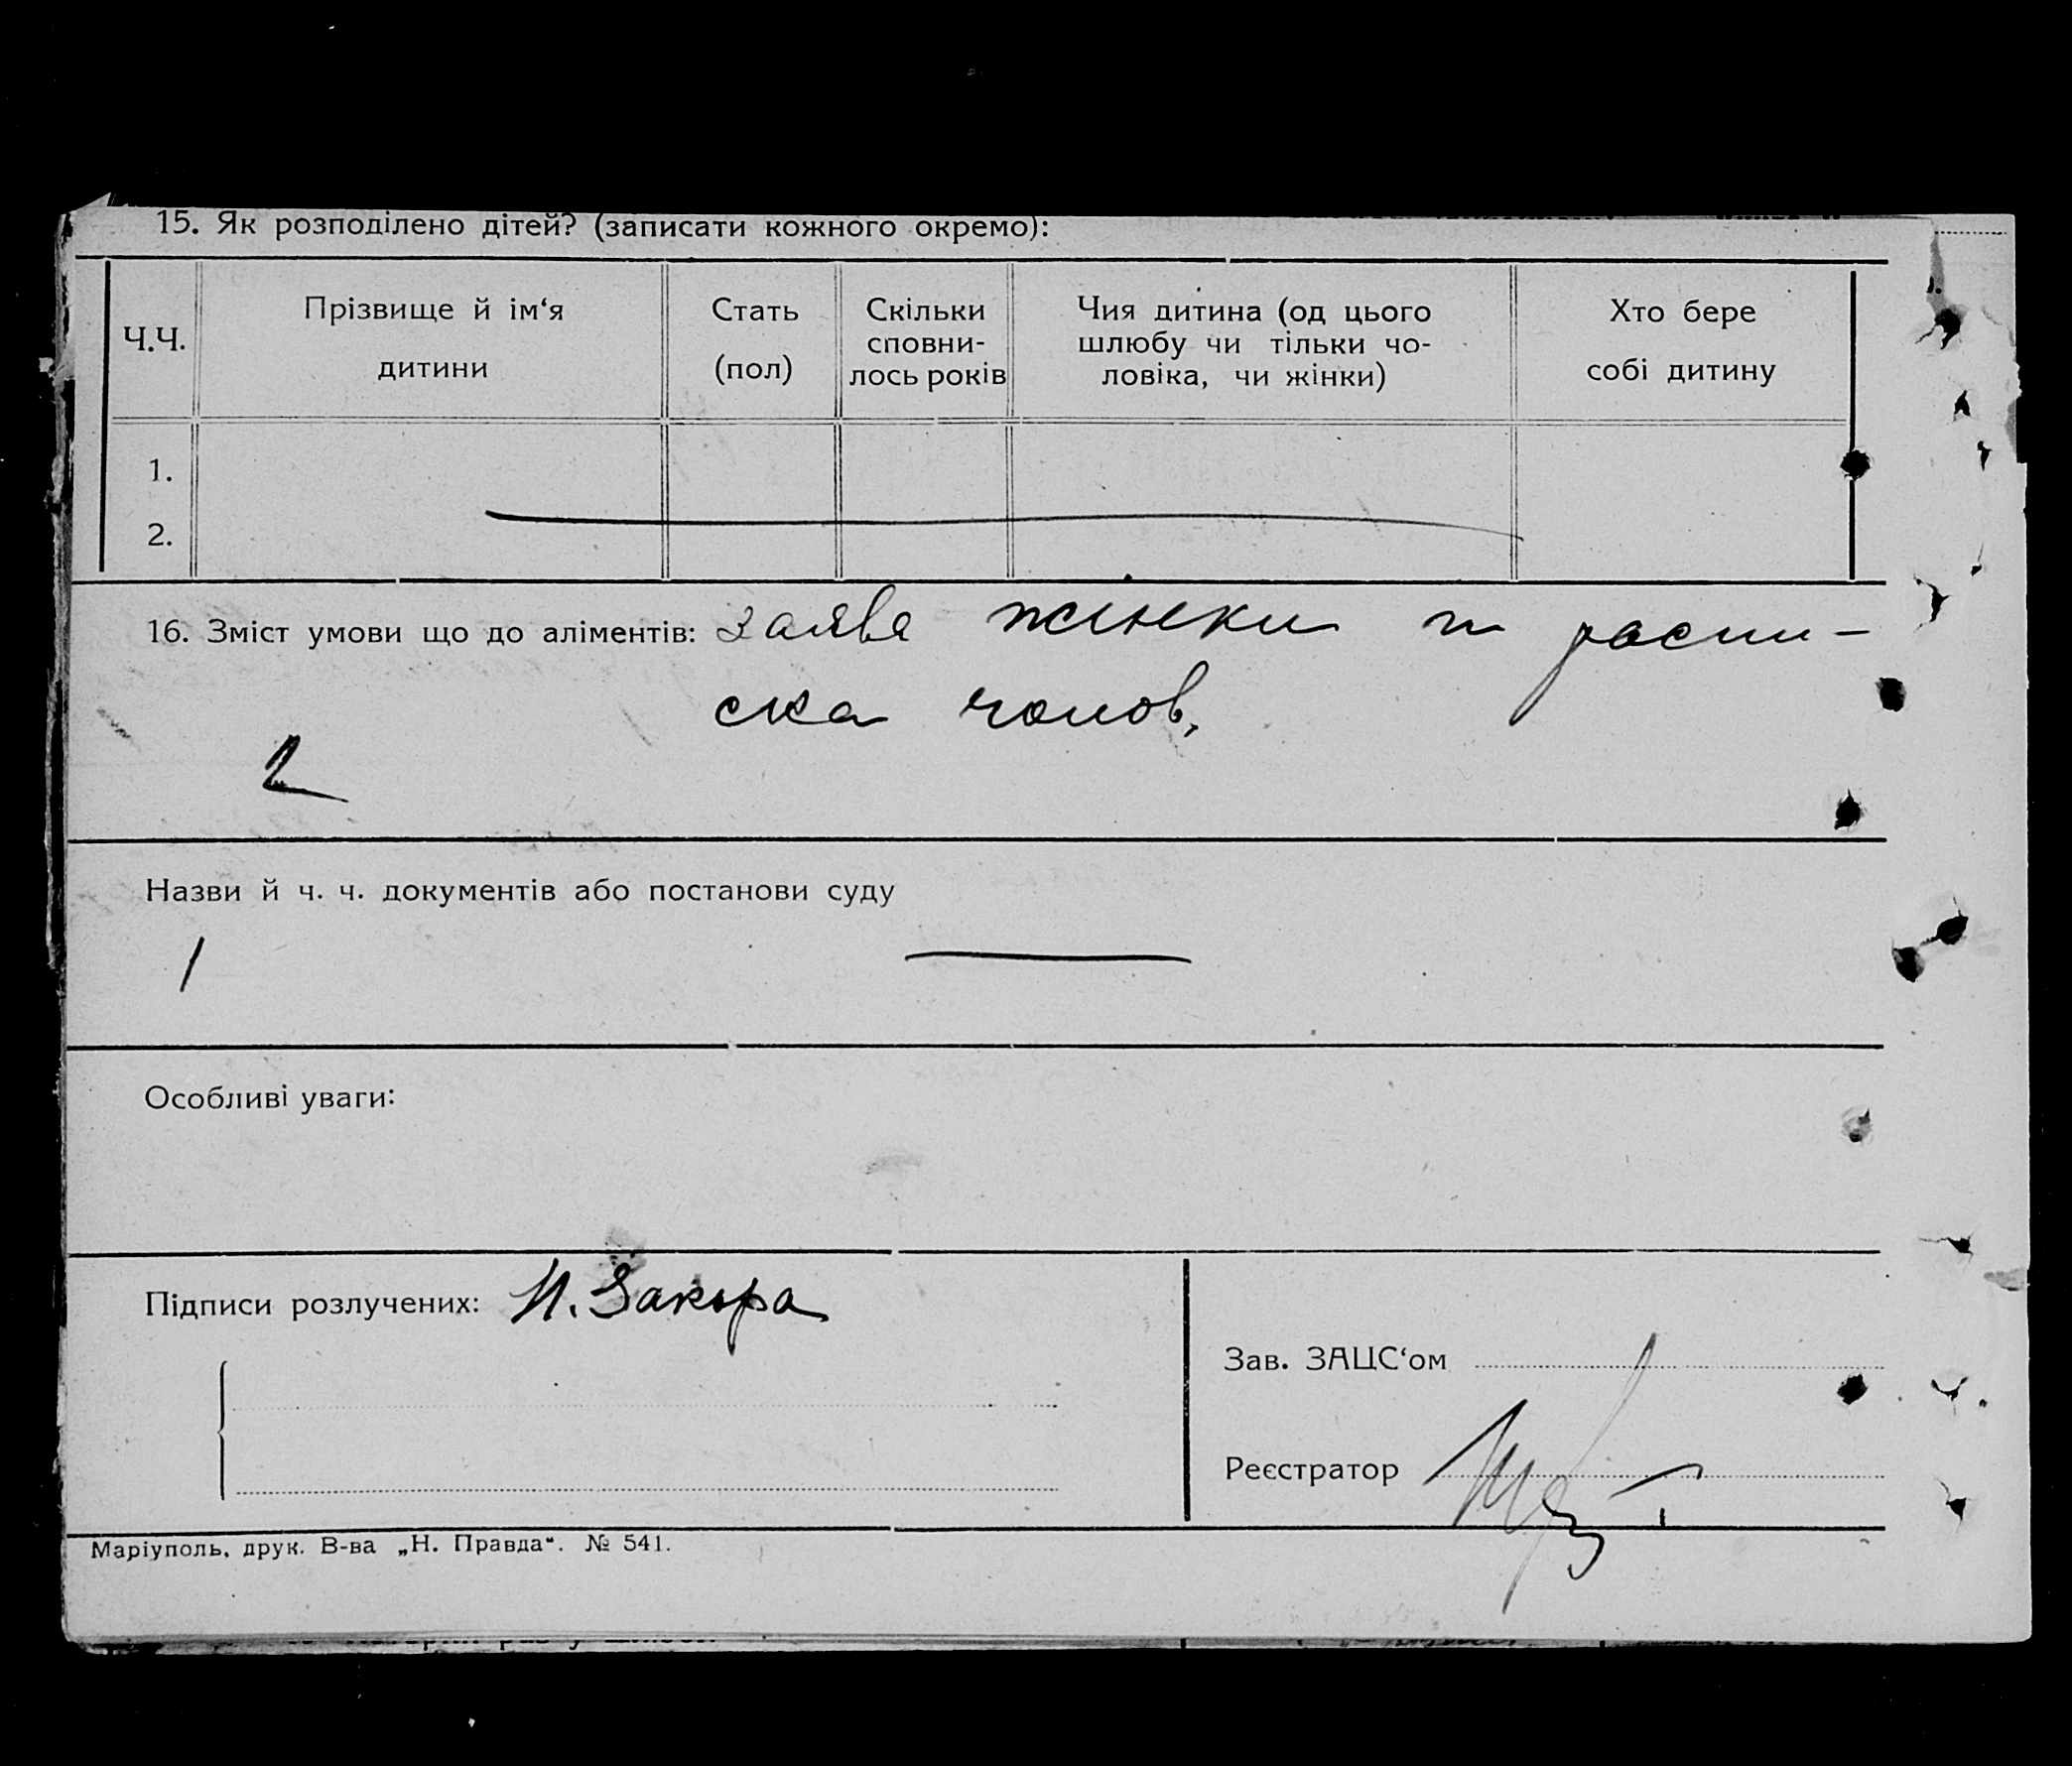 15. Як розподілено дітей? (записати кожного окремо):
Ч.Ч.
Прізвище й ім‘я
дитини
Стать
(пол)
Скільки
сповни-
лось років
Чия дитина (од цього
шлюбу чи тільки чо-
ловіка, чи жінки)
Хто бере
собі дитину
1.
2.
16. Зміст умови що до аліментів: заява жінки и распи-
ска чолов.
2
Назви й ч. ч. документів або постанови суду
1
Особливі уваги:
Підписи розлучених: И. Закора
Зав. ЗАЦС‘ом
Реєстратор
Маріуполь, друк. В-ва „Н. Правда“. № 541.